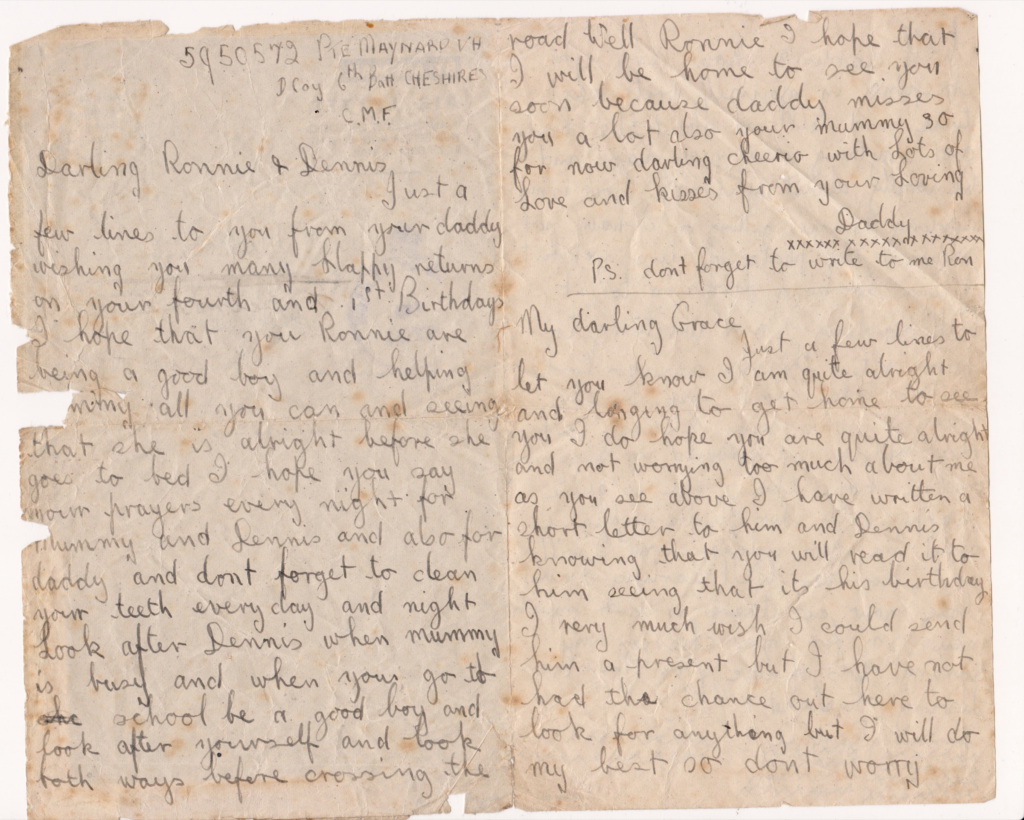 5950572 Pte MAYNARD V H
D Coy 6th Batt CHESHIRES
C.M.F.
Darling Ronnie & Dennis
Just a
few lines to you from your daddy
wishing you many Happy returns
on your fourth and 1st Birthdays
I hope that you Ronnie are
being a good boy and helping
mmy all you can and seeing
that she is alright before she
goes to bed I hope you say
your prayers every night for
mummy and Dennis and also for
daddy and dont forget to clean
your teeth every day and night
Look after Dennis when mummy
is busy and when you go to
school be a good boy and
look after yourself and look
both ways before crossing the
road Well Ronnie I hope that
I will be home to see you
soon because daddy misses
you a lot also your mummy so
for now darling cheerio with Lots of
Love and kisses from your Loving
Daddy
xxxxxx xxxxxxxxxxxxx
P.S. dont forget to write to me Ron
My darling Grace
Just a few lines to
let you know I am quite alright
and longing to get home to see
you I do hope you are quite alright
and not worrying too much about me
as you see above I have written a
short letter to him and Dennis
knowing that you will read it to
him seeing that its his birthday
I very much wish I could send
him a present but I have not
had the chance out here to
look for anything but I will do
my best so dont worry